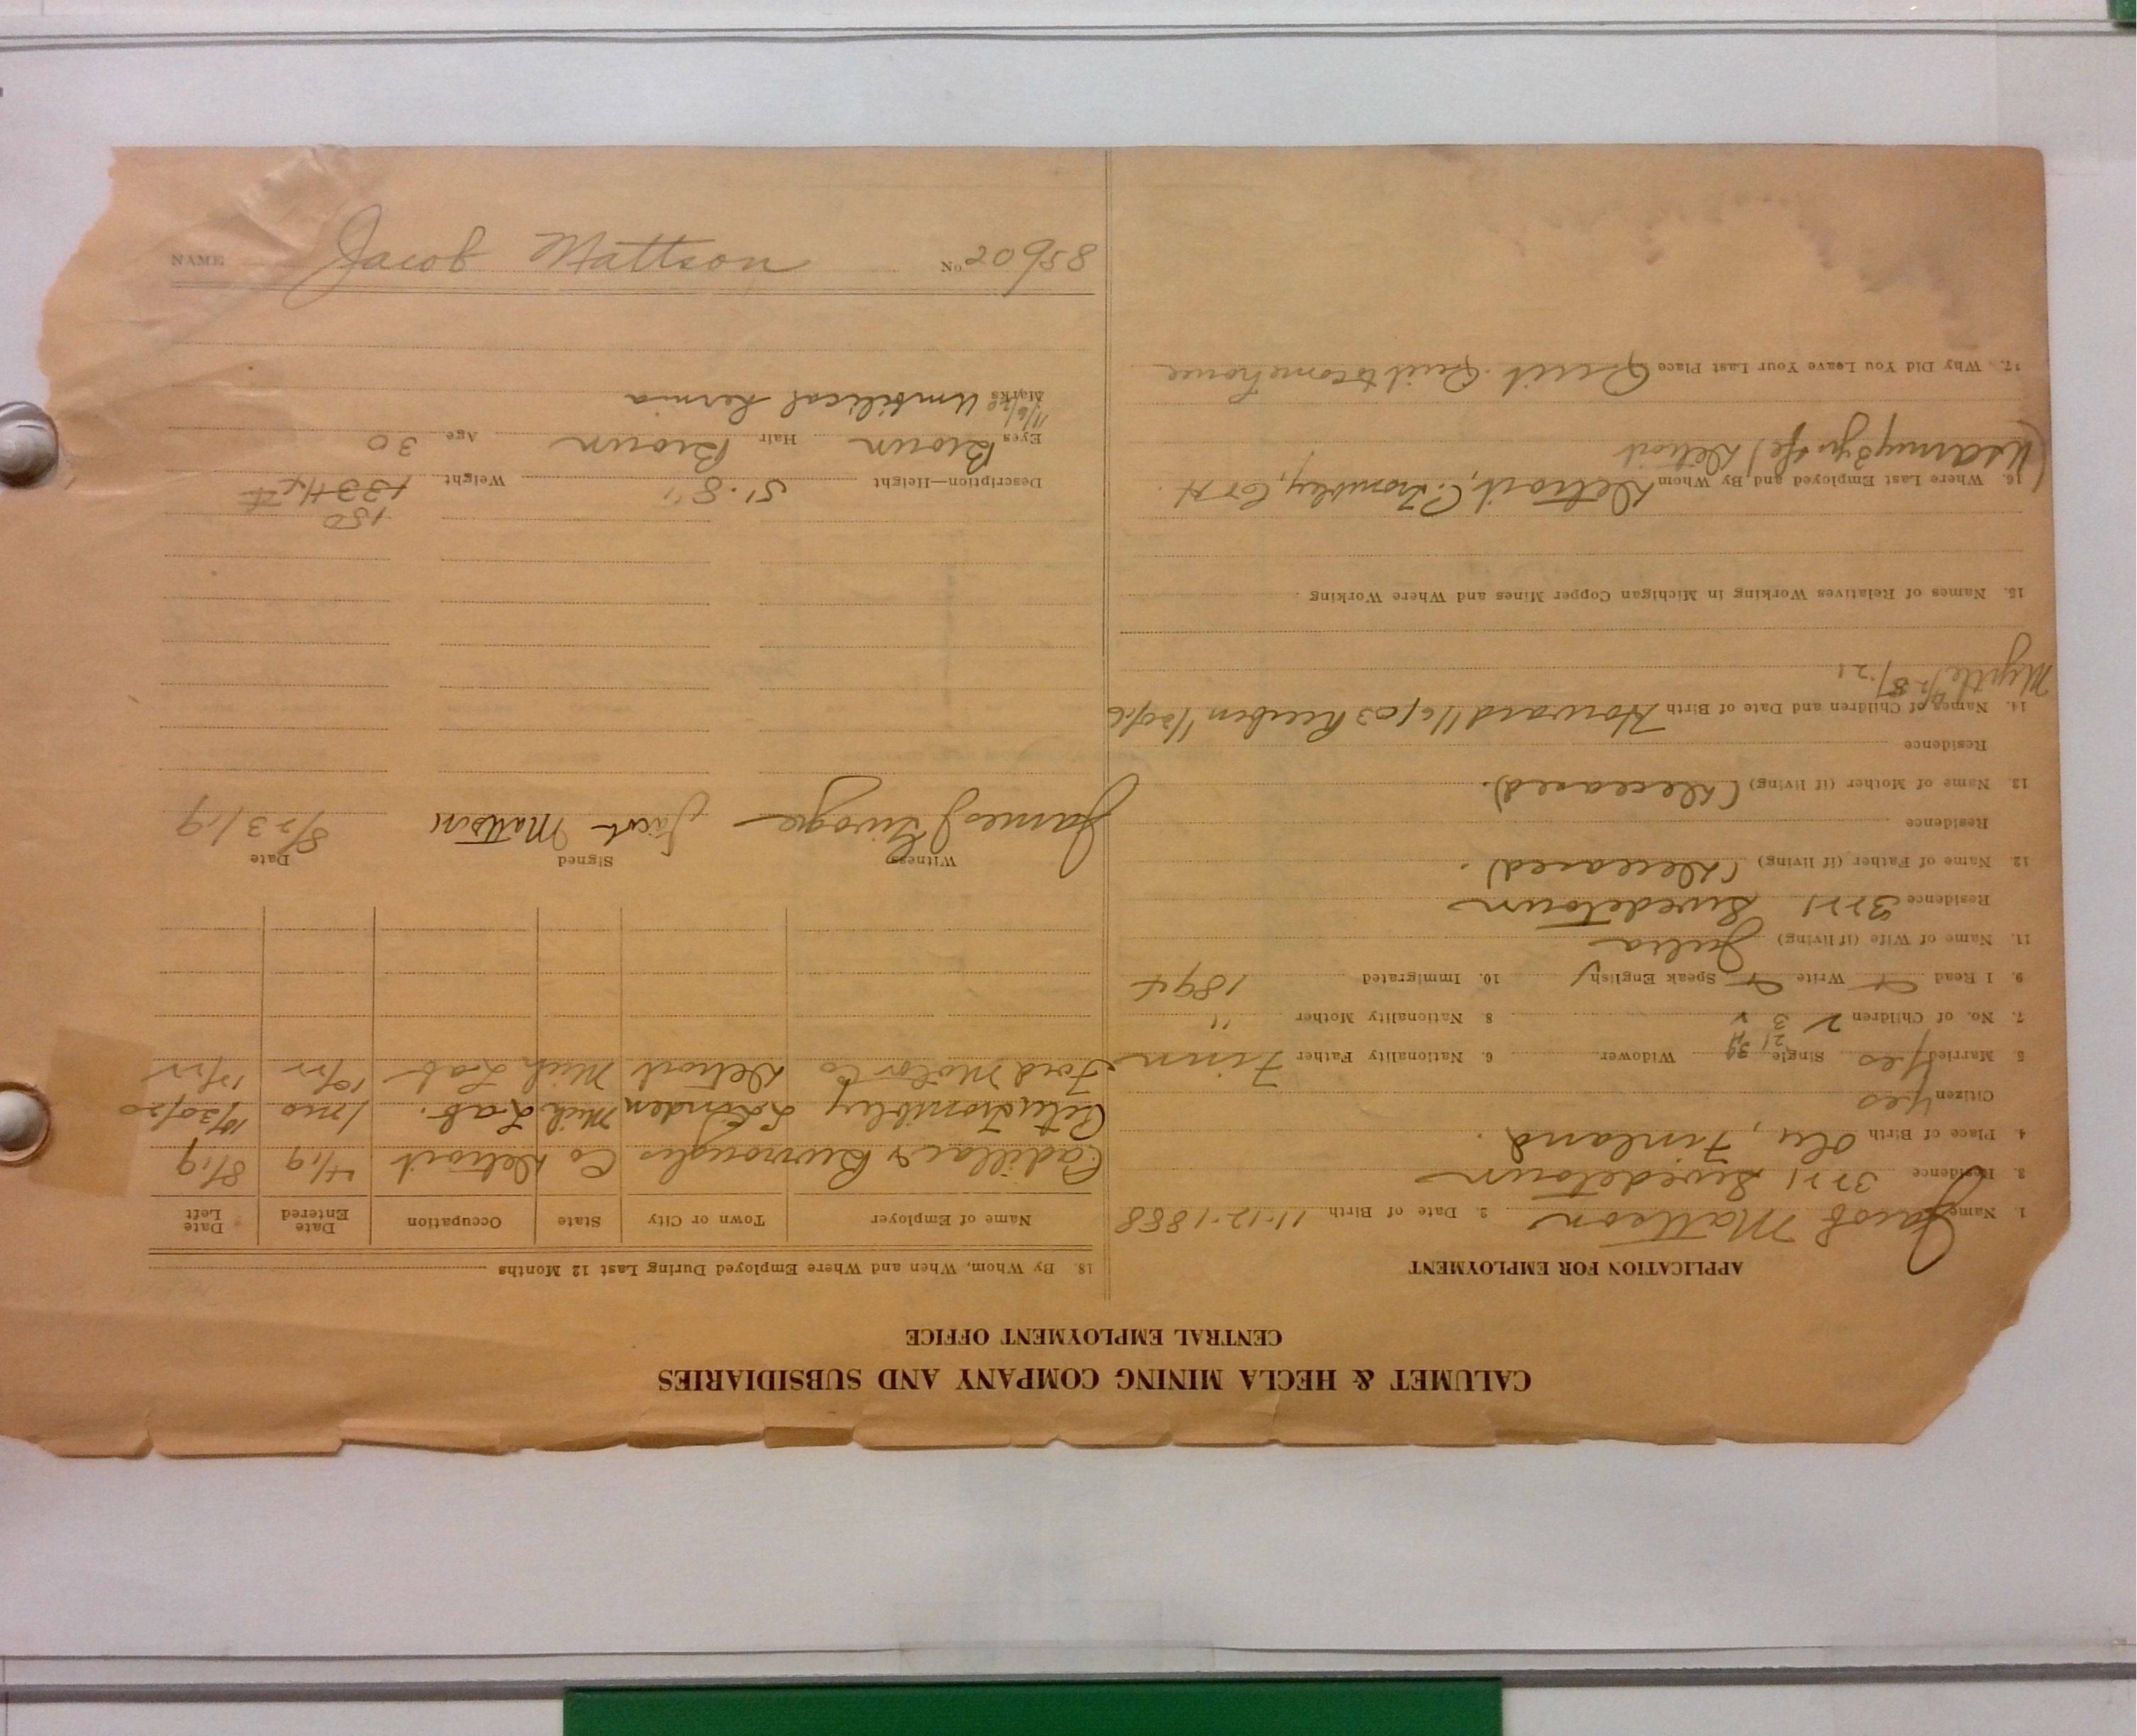 CALUMET & HECLA MINING COMPANY AND SUBSIDIARIES
CENTRAL EMPLOYMENT OFFICE
APPLICATION FOR EMPLOYMENT
1. Name Jacob Mattson 2. Date of Birth 11-12-1888
3. Residence 3271 Swedetown
4. Place of Birth Olu, Finland.
Citizen Yes
5. Married Yes Single Widower 6. Nationality Father Finn
7. No. of Children 2 3 8. Nationality Mother "
9. I Read Write Speak English 10. Immigrated 1894
11. Name of Wife (if living) Julia
Residence 3271 Swedetown
12. Name of Father (if living) (Deceased).
Residence
13. Name of Mother (if living) (Deceased).
Residence
14. Names of Children and Date of Birth Howard 11/6/03 Reuben 1/20/06
Myrtle
15. Names of Relatives Working in Michigan Copper Mines and Where Working
16. Where Last Employed and By Whom Detroit, C. Trombley, C&H
Detroit
17. Why Did You Leave Your Last Place Quit. Quit to come home
18. By Whom, When and Where Employed During Last 12 Months
Name of Employer Town or City State Occupation Date Entered Date Left
Cadillac & Burroughs Co Detroit 4/19 8/19
Trombley Mich Lab. 1 mo 10/30/20
Ford Motor Co Detroit Mich Lab 10/22 12/22
Witness Signed Date
James J Jacob Mattson 8/23/19
150
Description—Height 5'.8" Weight 133
Eyes Brown Hair Brown Age 30
11/6/20
Marks Umbilical hernia
NAME Jacob Mattson No. 20958